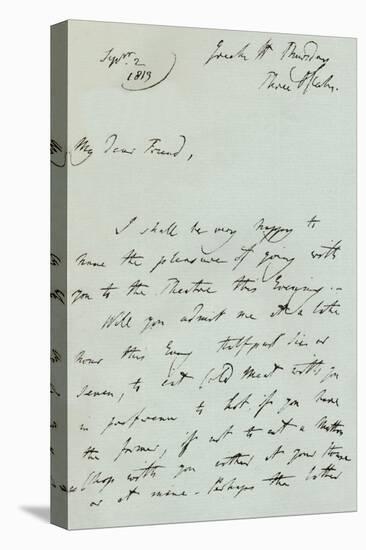 Sepr. 2
1813
Great St Thursday
Three O'Clock.
My Dear Friend,
I shall be very happy to
have the pleasure of going with
you to the Theatre this Evening. -
Will you admit me at a late
hour this Eveng half past Six or
Seven, to eat Cold Meat with you
in preference to hot if you have
the former, if not to eat a Mutton
Chop with you either at your House
or at mine - Perhaps the latter